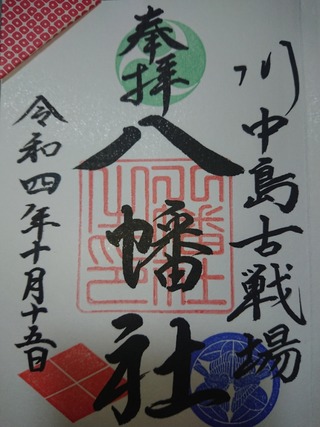 川中島古戦場
奉拝
八幡社
令和四年十月十五日